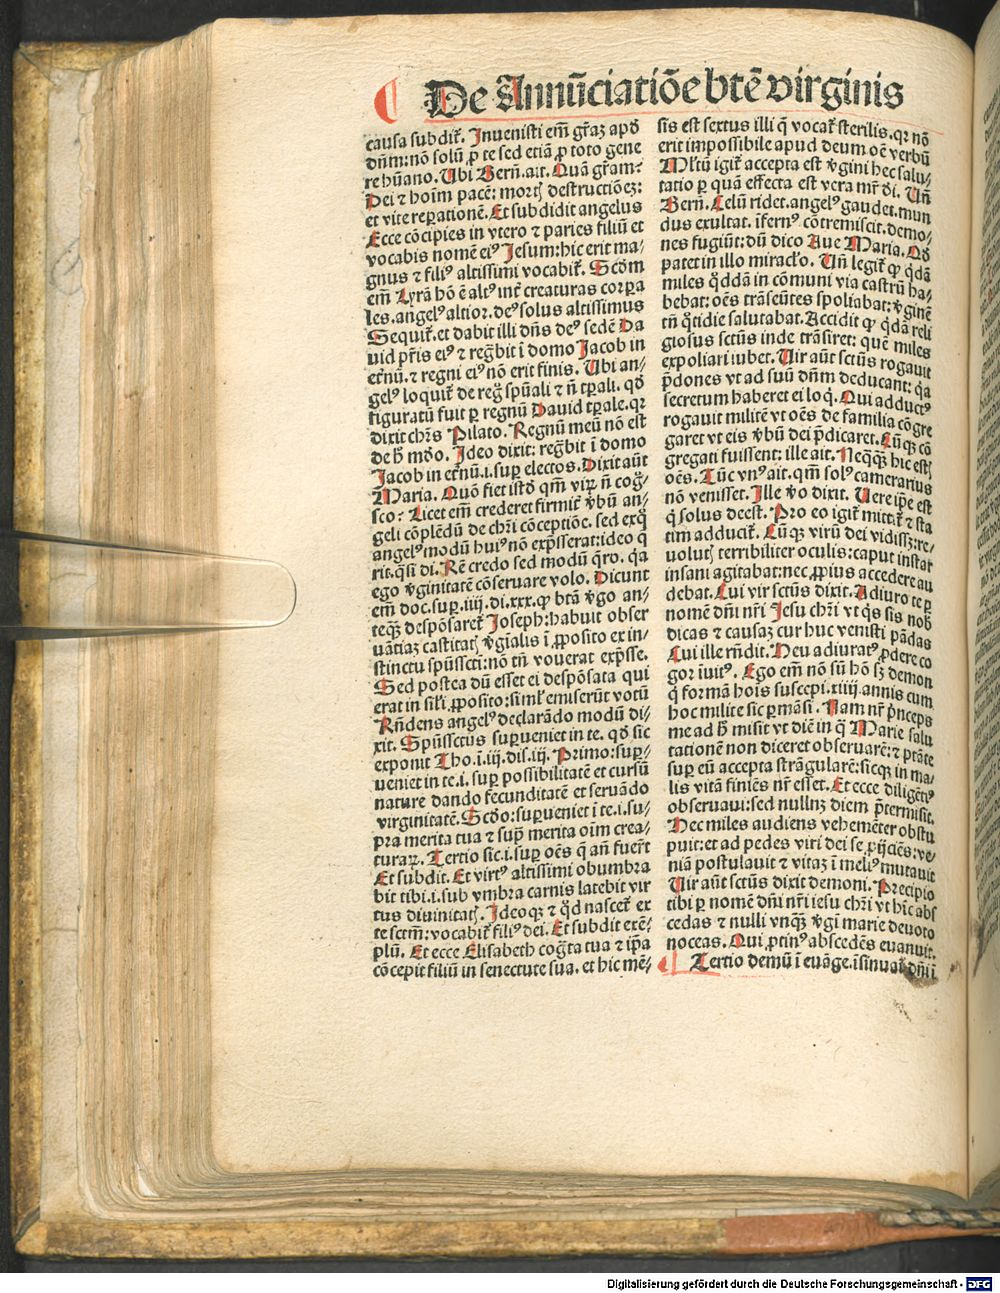 De Annūciatiōe btē virginis
causa subdit᷑. Inuenisti em̄ gr̄aꝫ apđ
dn̄m: nō solū ꝓ te sed etiā ꝓ toto gene
re hūano. Ubi Bern̄. ait. Quā gr̄am:
Dei ⁊ hoīm pacē: mortꝭ destructiōeꝫ:
et vite reꝑationē. Et subdidit angelus
Ecce cōcipies in vtero ⁊ paries filiū et
vocabis nomē eiꝰ Jesum: hic erit ma-
gnus ⁊ filiꝰ altissimi vocabit᷑. Scd̄m
em̄ Lyrā hō ē altꝰ int̄ creaturas corꝑa
les. angelꝰ altior. deꝰ solus altissimus
Sequit᷑. et dabit illi dn̄s deꝰ sedē Da
uid pr̄is eiꝰ ⁊ regn̄bit ī domo Jacob in
et̄nū. ⁊ regni eiꝰ nō erit finis. Ubi an-
gelꝰ loquit᷑ de regꝭ spūali ⁊ n̄ tꝑali. qđ
figuratū fuit ꝑ regnū Dauid tꝑale. qꝛ
dixit chr̄s Pilato. Regnū meū nō est
de h̄ mđo. Ideo dixit: regn̄bit ī domo
Jacob in et̄nū .i. suꝑ electos. Dixit aūt
Maria. Quō fiet istđ qm̄ viꝝ n̄ coḡ-
sco: Licet em̄ crederet firmit᷑ v̄bū an-
geli cōplēdū de chr̄i cōceptiōe. sed exq̄
angelꝰ modū huiꝰ nō exp̄sserat: ideo q̄
rit. q̄si di. Rē credo sed modū q̄ro. q̄a
ego v̄ginitatē cōseruare volo. Dicunt
em̄ doc. suꝑ .iiij. di. xxx. ꝙ btā v̄go an-
teqꝫ despōsaret᷑ Joseph: habuit obser
uātiaꝫ castitatꝭ v̄gīalis ī ꝓposito ex in-
stinctu spūsscti: nō tn̄ vouerat exp̄sse.
Sed postea dū esset ei despōsata qui
erat in sil̄i ꝓposito: siml̄ emiserūt votū
Rn̄dens angelꝰ declarādo modū di-
xit. Spūssctus suꝑueniet in te. qđ sic
exponit Tho. ī .iij. dis. iij. Primo: suꝑ-
ueniet in te .i. suꝑ possibilitatē et cursū
nature dando fecunditatē et seruādo
virginitatē. Scđo: suꝑueniet ī te .i. su-
pra merita tua ⁊ suꝑ merita oīm crea-
turaꝝ. Tertio sic .i. suꝑ oēs q̄ an̄ fuer̄t
Et subdit. Et virtꝰ altissimi obumbra
bit tibi .i. sub vmbra carnis latebit vir
tus diuinitatꝭ. Ideoqꝫ ⁊ q̄d nascet᷑ ex
te sctm̄: vocabit᷑ filiꝰ dei. Et subdit exē-
plū. Et ecce Elisabeth coḡta tua ⁊ ip̄a
cōcepit filiū in senectute sua. et hic mē-
sis est sextus illi q̄ vocat᷑ sterilis. qꝛ nō
erit impossibile apud deum oē verbū
Ml̄tū igit᷑ accepta est v̄gini hec salu-
tatio ꝑ quā effecta est vera mr̄ di. Un̄
Bern̄. Celū ridet. angelꝰ gaudet. mun
dus exultat. īfernꝰ cōtremiscit. demo-
nes fugiūt: dū dico Aue Maria. Qđ
patet in illo miracl̄o. Un̄ legit᷑ ꝙ q̄dā
miles q̄ddā in cōmuni via castrū ha-
bebat: oēs trāseūtes spoliabat: v̄ginē
tn̄ q̄tidie salutabat. Accidit ꝙ q̄dā reli
giosus sctūs inde trāsiret: quē miles
expoliari iubet. Uir aūt sctūs rogauit
p̄dones vt ad suū dn̄m deducant: q̄a
secretum haberet ei loq̄. Qui adductꝰ
rogauit militē vt oēs de familia cōgre
garet vt eis v̄bū dei p̄dicaret. Cūqꝫ cō
gregati fuissent: ille ait. Neqqꝫ hic estꝭ
oēs. Tūc vnꝰ ait. qm̄ solꝰ camerarius
nō venisset. Ille v̄o dixit. Uere ip̄e est
q̄ solus deest. Pro eo igit᷑ mittit᷑ ⁊ sta
tim adducit᷑. Cūqꝫ virū dei vidissꝫ: re-
uolutꝭ terribiliter oculis: caput instar
insani agitabat: nec ꝓpius accedere au
debat. Cui vir sctūs dixit. Adiuro te ꝑ
nomē dn̄i nr̄i Jesu chr̄i vt q̄s sis nob̄
dicas ⁊ causaꝫ cur huc venisti pādas
Cui ille rn̄dit. Heu adiuratꝰ ꝓdere co
gor īuitꝰ. Ego em̄ nō sū hō sꝫ demon
q̄ formā hoīs suscepi .xiiij. annis cum
hoc milite sic ꝑmāsi. Nam nr̄ p̄nceps
me ad h̄ misit vt diē in q̄ Marie salu
tationē non diceret obseruarē: ⁊ ptāte
suꝑ eū accepta strāgularē: sicqꝫ in ma-
lis vitā finiēs nr̄ esset. Et ecce diligētiꝰ
obseruaui: sed nullnꝫ diem p̄termisit.
Hec miles audiens vehemēter obstu
puit: et ad pedes viri dei se ꝓijciēs: ve-
niā postulauit ⁊ vitaꝫ ī meliꝰ mutauit
Uir aūt sctūs dixit demoni. Precipio
tibi ꝑ nomē dn̄i nr̄i iesu chr̄i vt hīc abs
cedas ⁊ nulli vnqꝫ v̄gī marie deuoto
noceas. Qui ꝓtinꝰ abscedēs euanuit.
Tertio demū ī euāge. īsinuat᷑ dn̄i ī
Digitalisierung gefördert durch die Deutsche Forschungsgemeinschaft - DFG